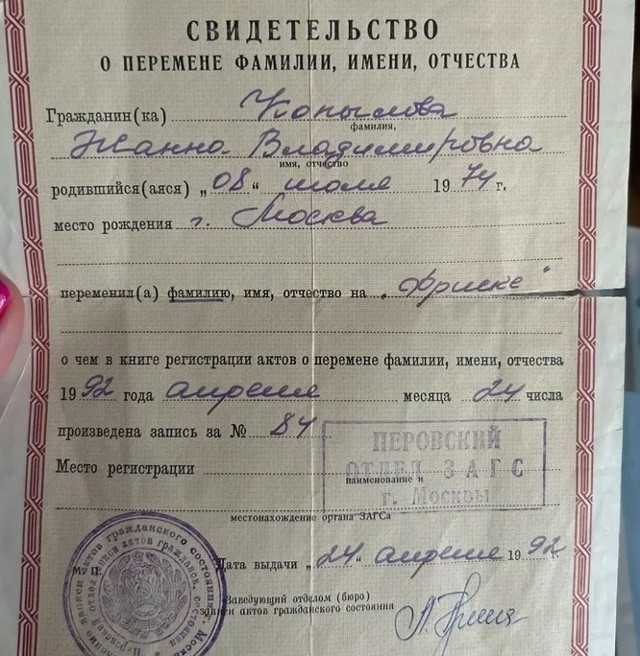 СВИДЕТЕЛЬСТВО
О ПЕРЕМЕНЕ ФАМИЛИИ, ИМЕНИ, ОТЧЕСТВА
Гражданин(ка) Копылова
фамилия,
Жанна Владимировна
имя, отчество
родившийся(аяся) „08“ июля 1974 г.
место рождения г. Москва
переменил(а) фамилию, имя, отчество на „Фриске“
о чем в книге регистрации актов о перемене фамилии, имени, отчества
1992 года апреля месяца 24 числа
произведена запись за № 84
ПЕРОВСКИЙ
Место регистрации
ОТДЕЛ ЗАГС
наименование и
г. Москвы
местонахождение органа ЗАГСа
М. П.
Дата выдачи „24“ апреля 1992 г.
Заведующий отделом (бюро)
записи актов гражданского состояния